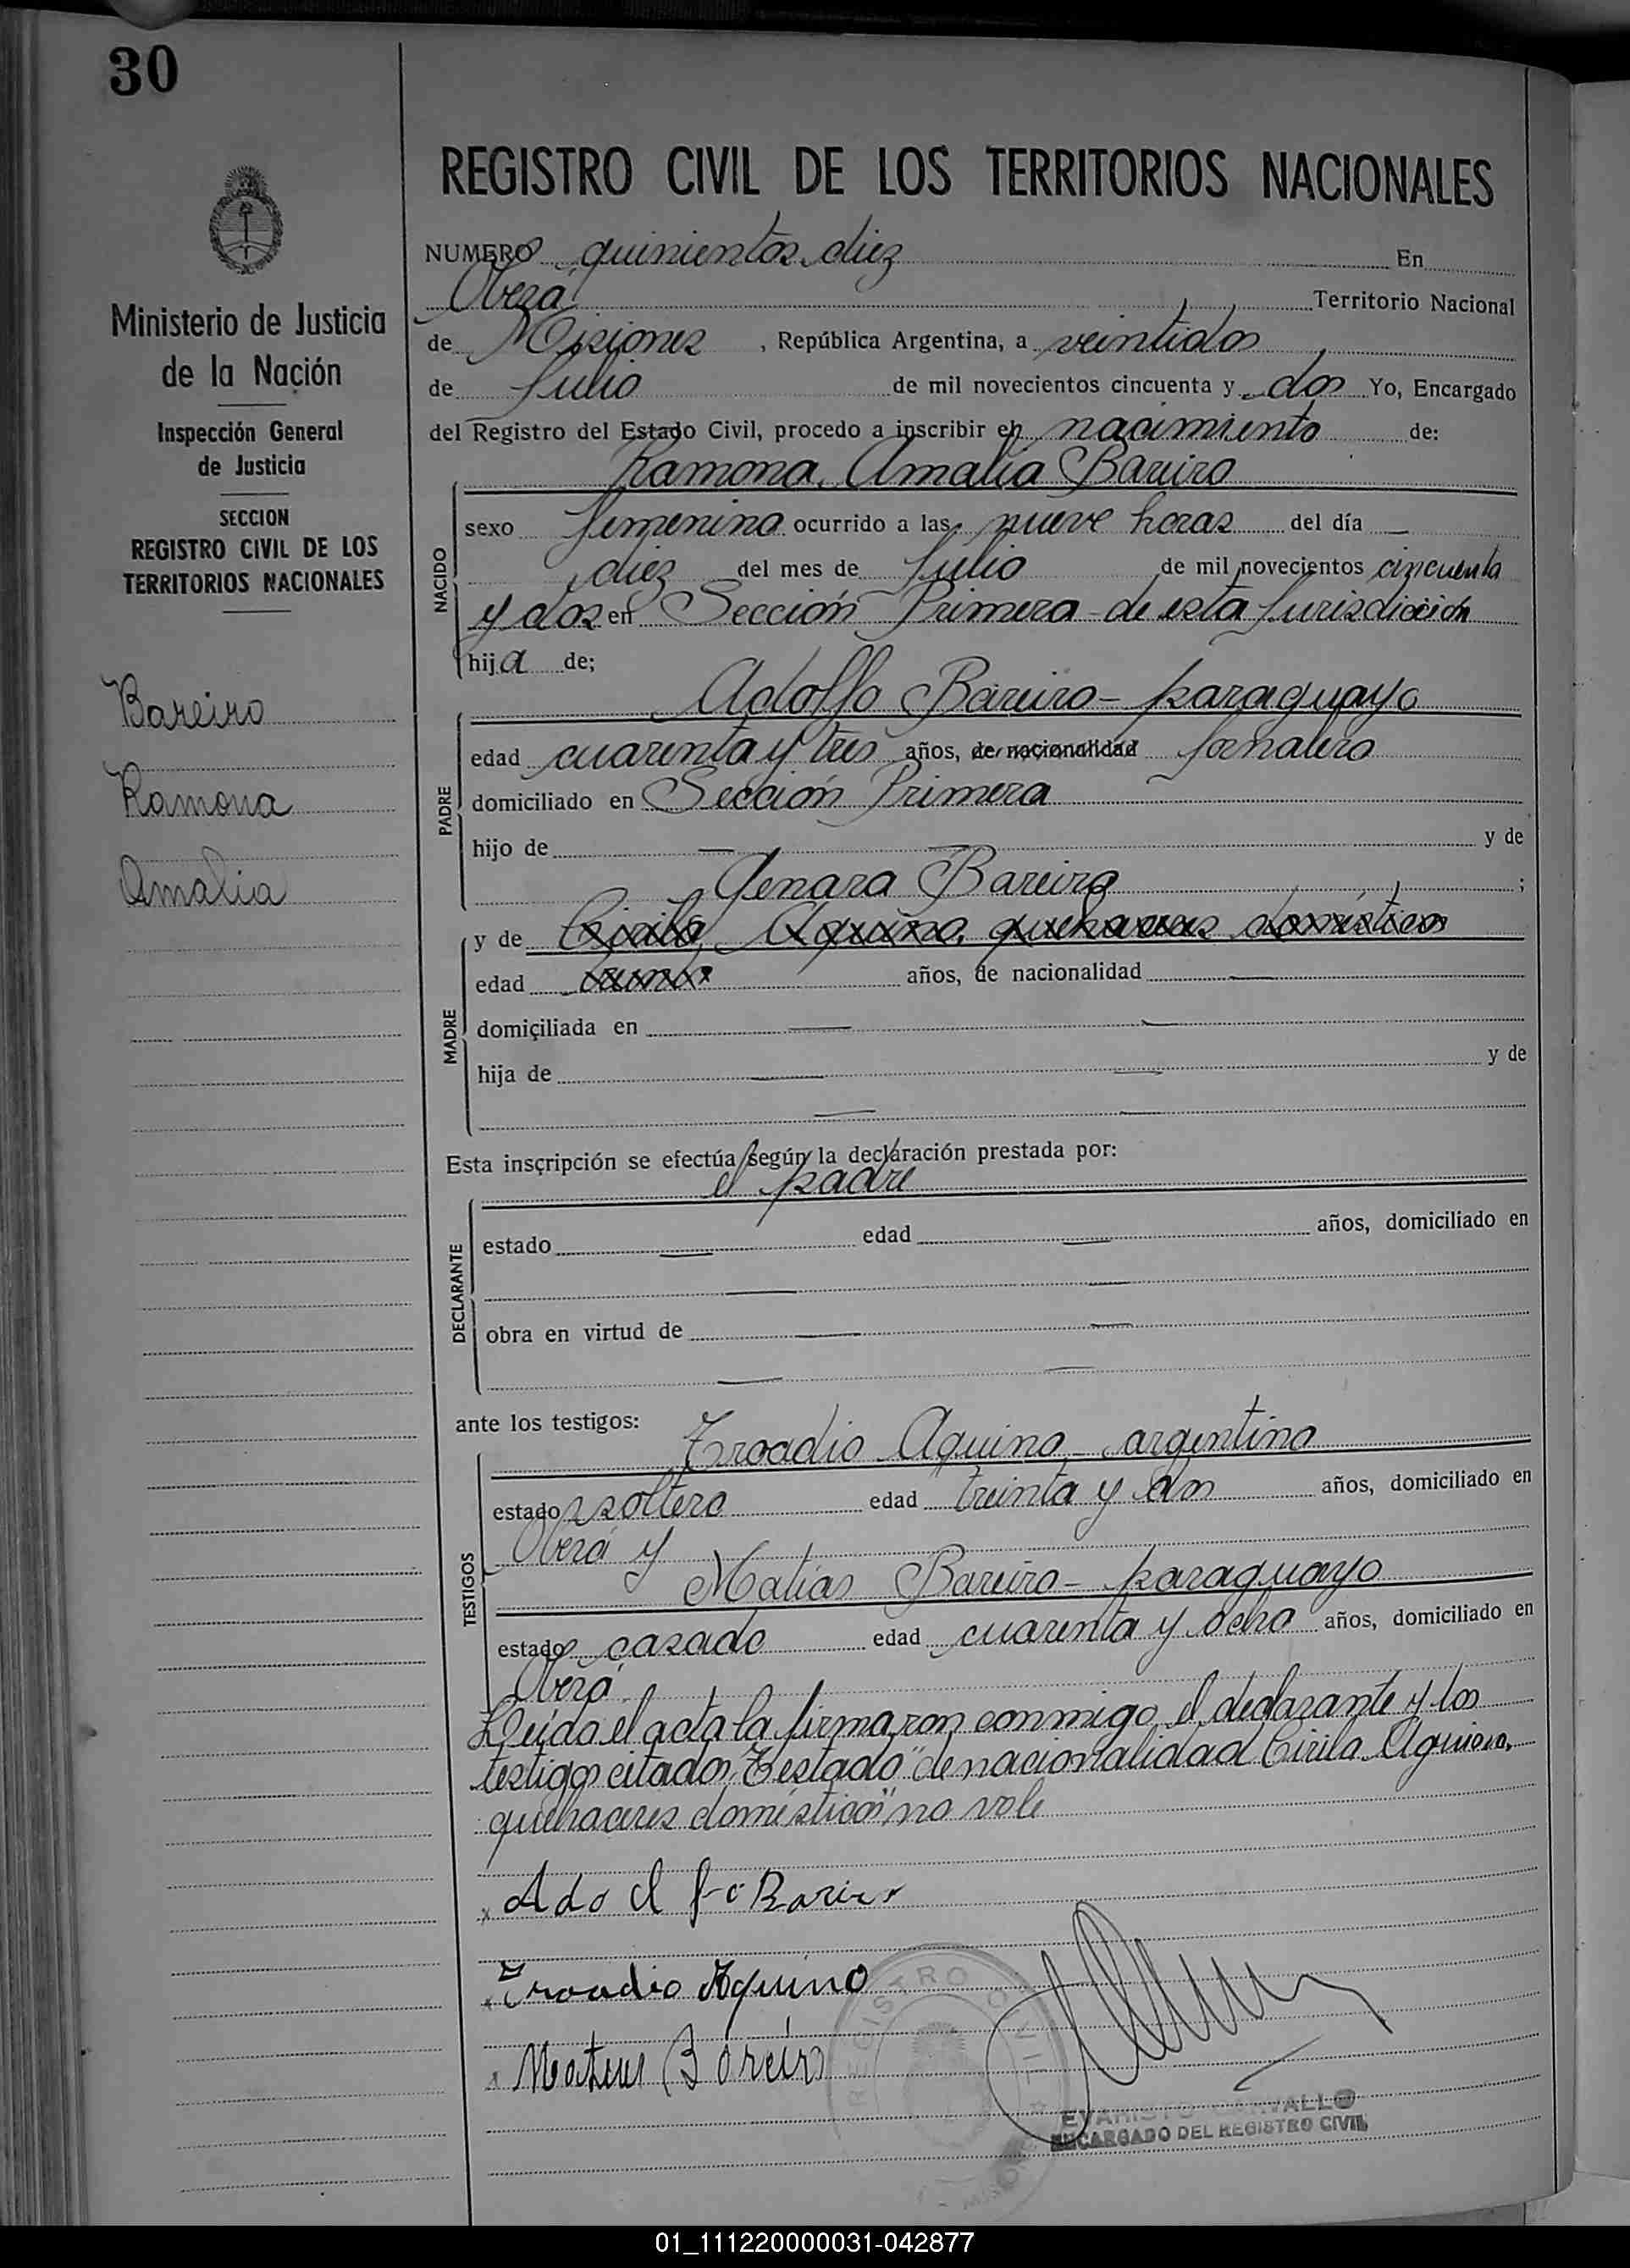 30
REGISTRO CIVIL DE LOS TERRITORIOS NACIONALES
Ministerio de Justicia
de la Nación
Inspección General
de Justicia
SECCION
REGISTRO CIVIL DE LOS
TERRITORIOS NACIONALES
Bareiro
Ramona
Amalia
NUMERO quinientos diez En
Oberá Territorio Nacional
de Misiones, República Argentina, a veintidos
de Julio de mil novecientos cincuenta y dos Yo, Encargado
del Registro del Estado Civil, procedo a inscribir el nacimiento de:
Ramona Amalia Bareiro
NACIDO
sexo femenino ocurrido a las nueve horas del día
diez del mes de Julio de mil novecientos cincuenta
y dos en Sección Primera de esta Jurisdicción
hija de;
Adolfo Bareiro - paraguayo
PADRE
edad cuarenta y tres años, de nacionalidad Jornalero
domiciliado en Sección Primera
hijo de y de
Genara Bareiro ;
MADRE
y de Cirila Aquino, quehaceres domésticos
edad años, de nacionalidad
domiciliada en
hija de y de
Esta inscripción se efectúa según la declaración prestada por:
el padre
DECLARANTE
estado edad años, domiciliado en
obra en virtud de
ante los testigos:
Troadio Aquino - argentino
TESTIGOS
estado soltero edad treinta y dos años, domiciliado en
Oberá y
Matias Bareiro - paraguayo
estado casado edad cuarenta y ocho años, domiciliado en
Oberá.
Leída el acta la firmaron conmigo el declarante y los
testigos citados, Testado "de nacionalidad Cirila Aquino,
quehaceres domésticos", no vale
Troadio Aquino
REGISTRO CIVIL
EVARISTO CARVALLO
ENCARGADO DEL REGISTRO CIVIL
01_111220000031-042877